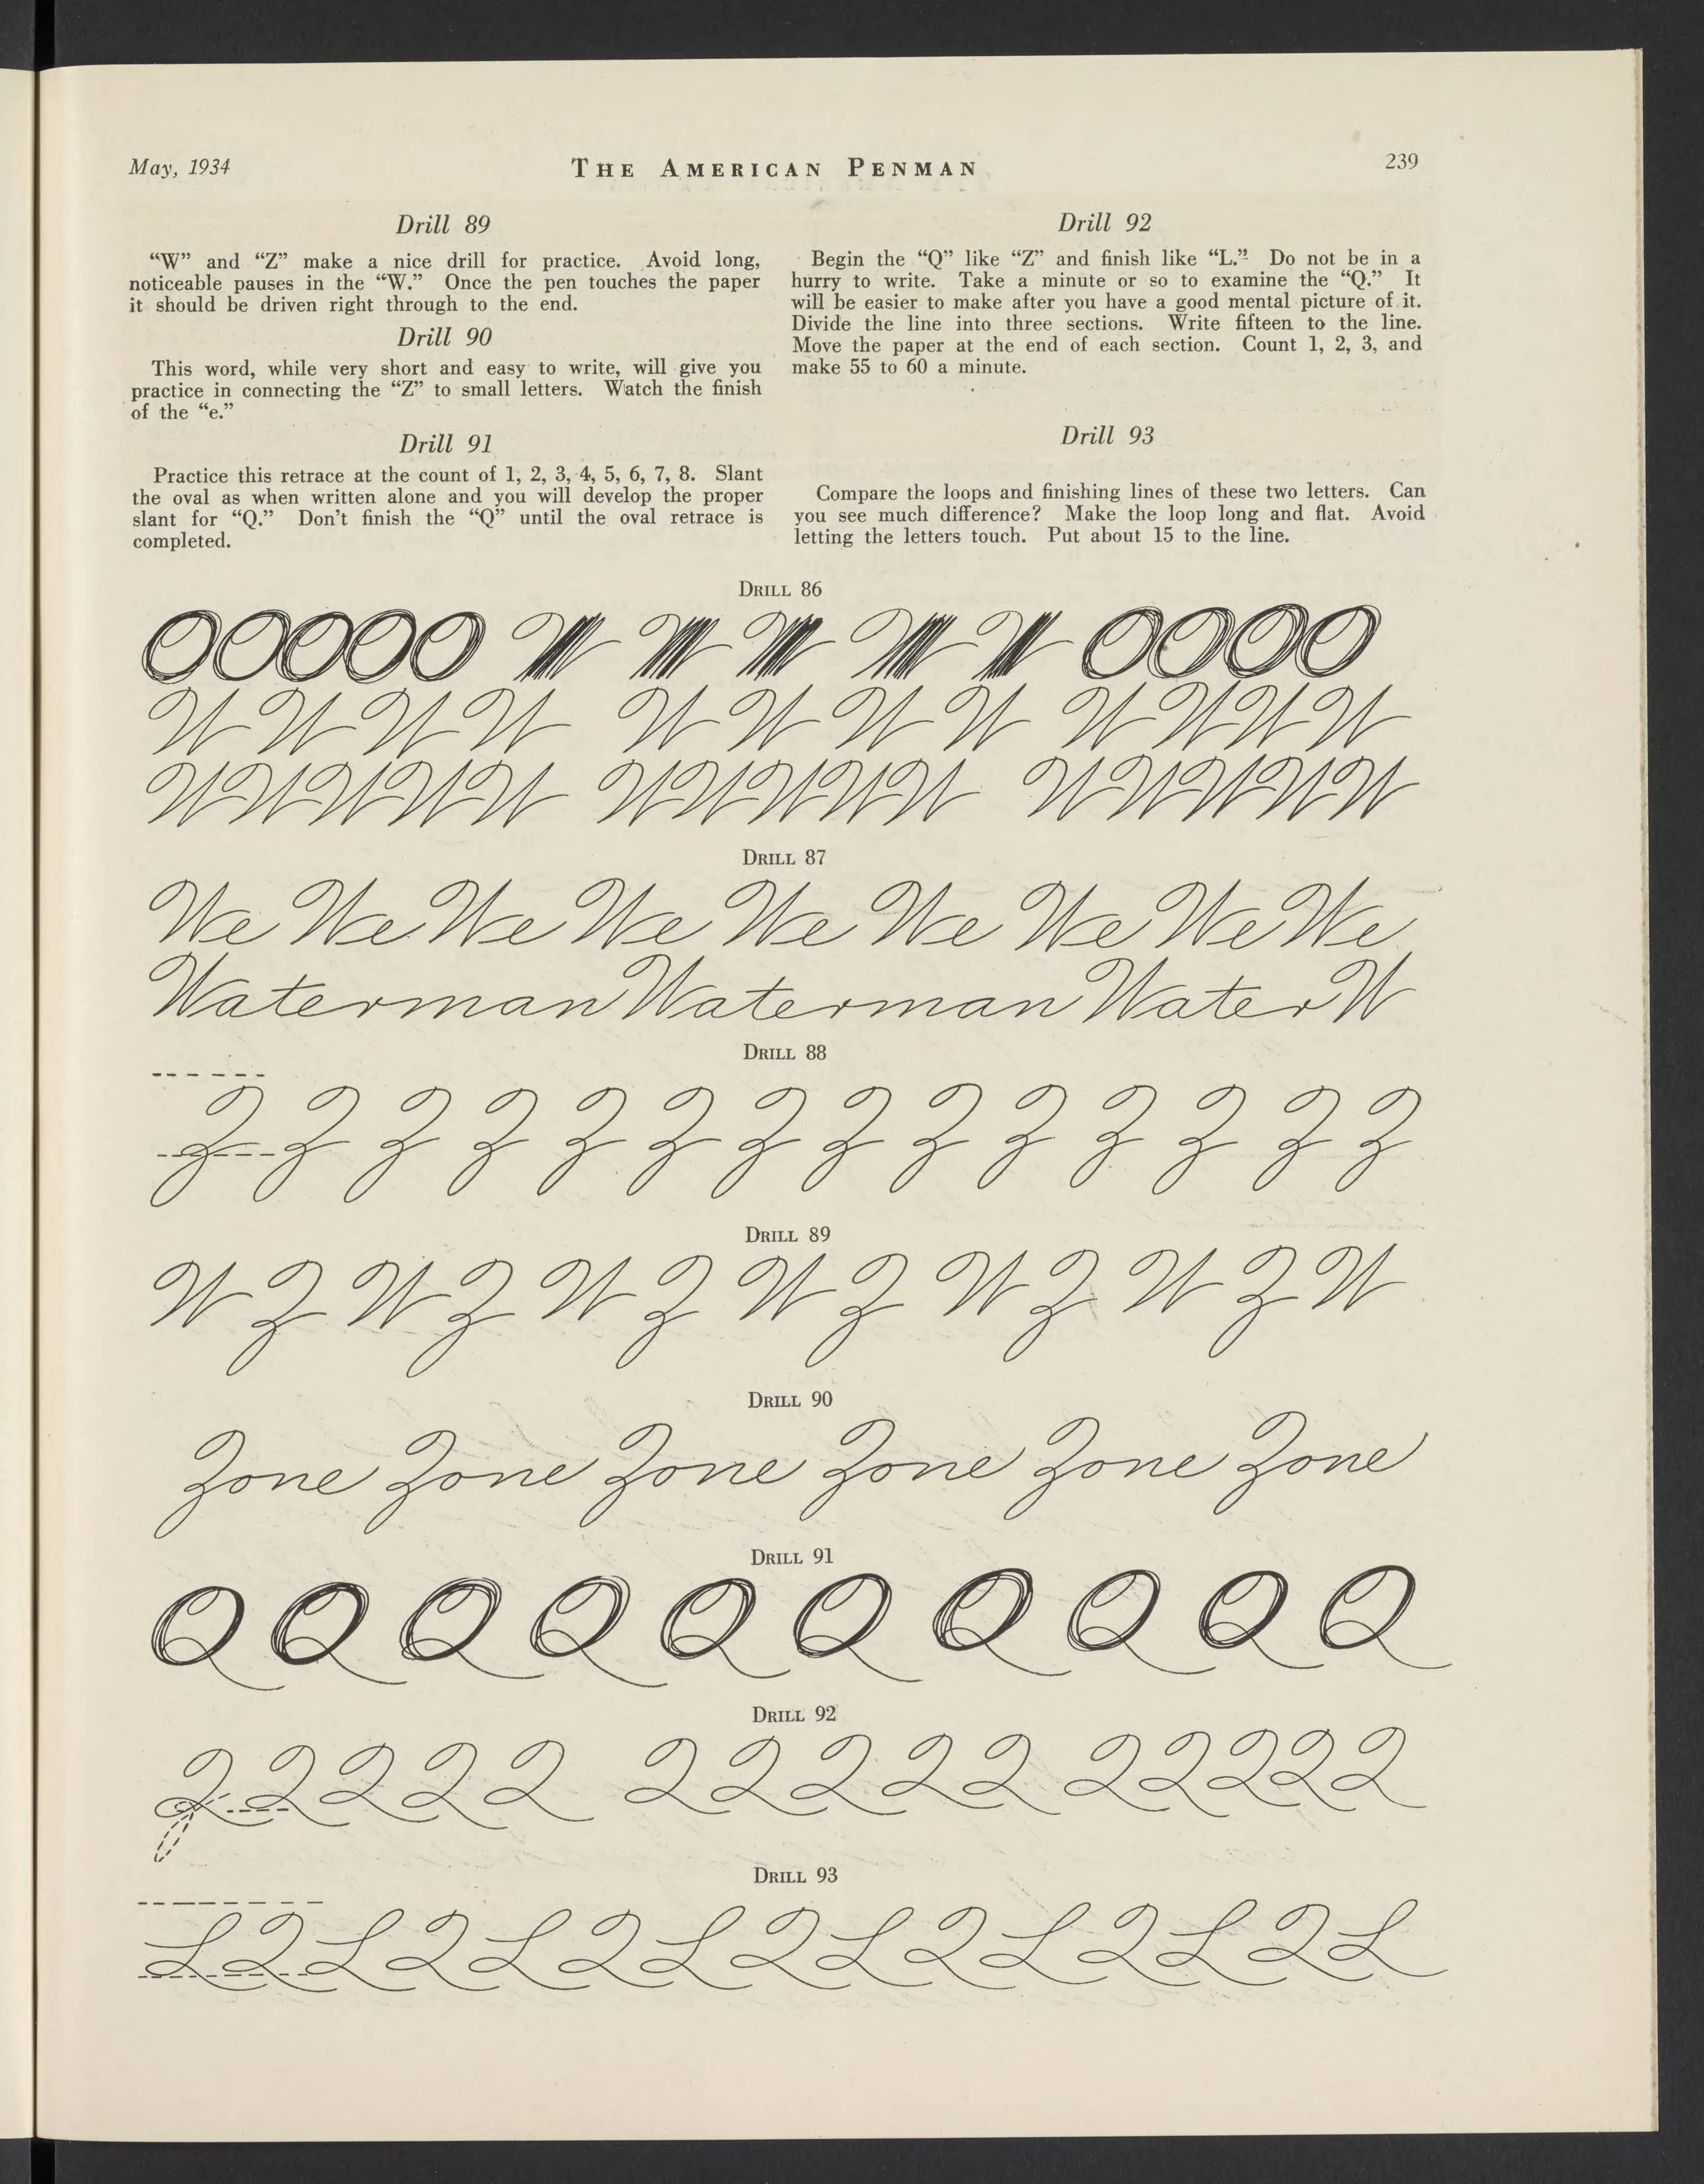 May, 1934
THE AMERICAN PENMAN
239
Drill 89
“W” and “Z” make a nice drill for practice. Avoid long,
noticeable pauses in the “W.” Once the pen touches the paper
it should be driven right through to the end.
Drill 90
This word, while very short and easy to write, will give you
practice in connecting the “Z” to small letters. Watch the finish
of the “e.”
Drill 91
Practice this retrace at the count of 1, 2, 3, 4, 5, 6, 7, 8. Slant
the oval as when written alone and you will develop the proper
slant for “Q.” Don’t finish the “Q” until the oval retrace is
completed.
Drill 92
Begin the “Q” like “Z” and finish like “L.” Do not be in a
hurry to write. Take a minute or so to examine the “Q.” It
will be easier to make after you have a good mental picture of it.
Divide the line into three sections. Write fifteen to the line.
Move the paper at the end of each section. Count 1, 2, 3, and
make 55 to 60 a minute.
Drill 93
Compare the loops and finishing lines of these two letters. Can
you see much difference? Make the loop long and flat. Avoid
letting the letters touch. Put about 15 to the line.
DRILL 86
O O O O O W W W W W O O O O
W W W W W W W W W W W W
W W W W W W W W W W W W W W W
DRILL 87
We We We We We We We We We
Waterman Waterman Water W
DRILL 88
Z Z Z Z Z Z Z Z Z Z Z Z Z Z
DRILL 89
W Z W Z W Z W Z W Z W Z W
DRILL 90
Zone Zone Zone Zone Zone Zone
DRILL 91
Q Q Q Q Q Q Q Q Q Q
DRILL 92
Q Q Q Q Q Q Q Q Q Q Q Q Q Q Q
DRILL 93
L Q L Q L Q L Q L Q L Q L Q L